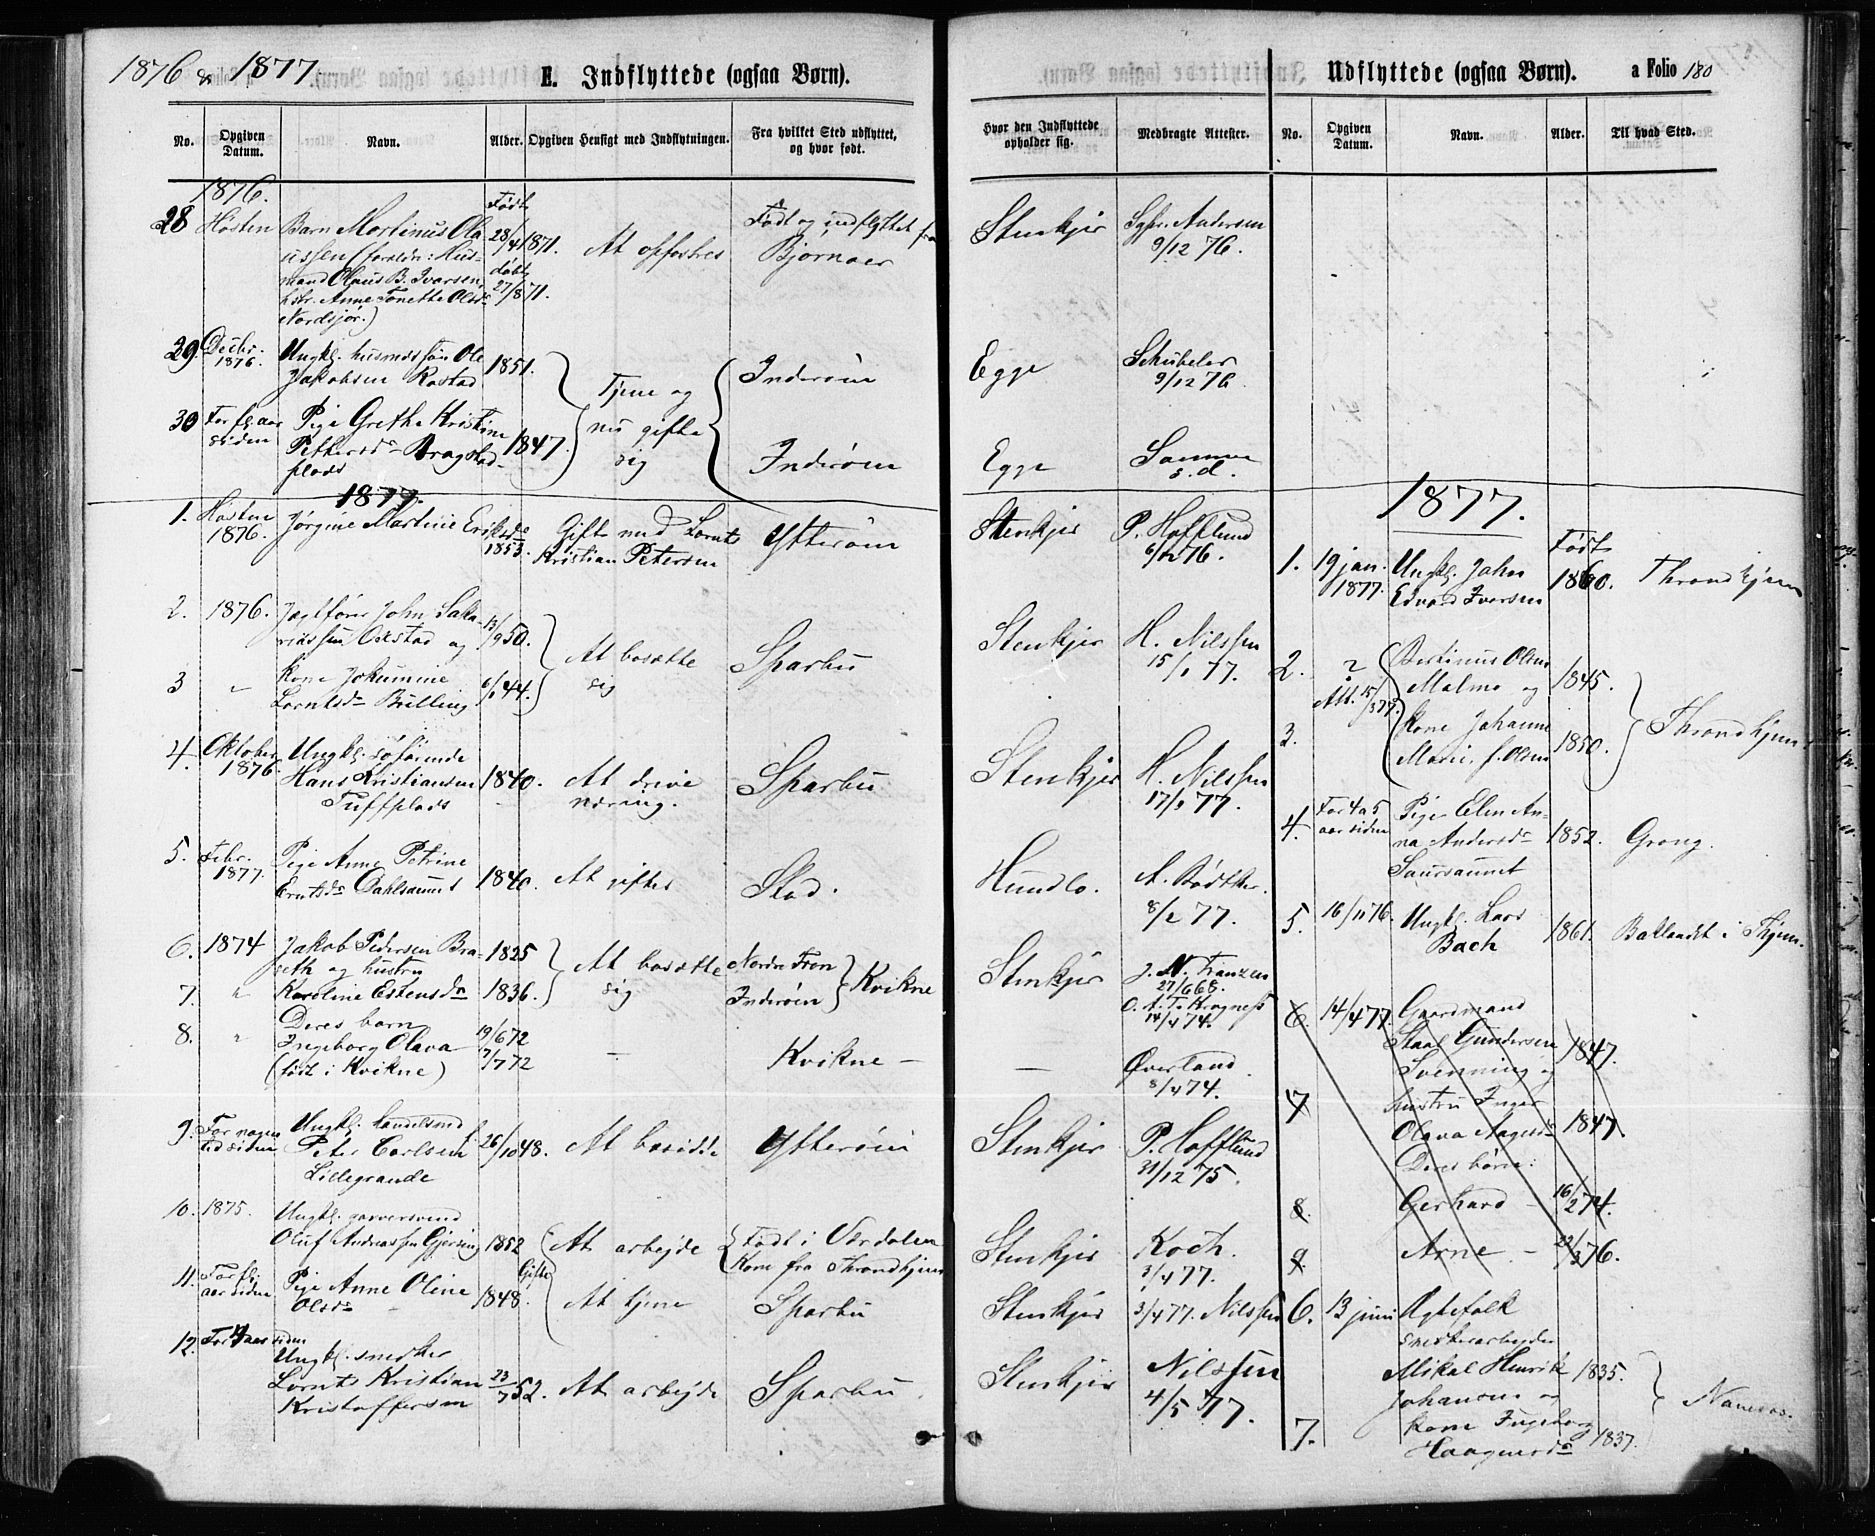 1876 & 1877
E. Indflyttede (ogsaa Børn).
No.
Opgiven Datum.
Navn.
Alder.
Opgiven Hensigt med Indflytningen.
Fra hvilket Sted udflyttet, og hvor født.
1876.
28 Høsten Barn Martinus Ola- Født 28/4 1871. At opfostres Født og indflyttet fra Bjørnøer
ussen (forældr: Hus-
mand Olaus B. Ivarsen, døbt 27/8 71.
hstr. Anne Tonette Olsdr
Nordsjør.)
29 Decbr. 1876. Ungkl. husmds søn Ole 1851. Tjene og Inderøen
Jakobsen Rostad
30 For fl. aar siden Pige Grethe Kristine 1847. nu gifte sig Inderøen
Pettersdr Bragstad-
plads
1877.
1. Høsten 1876. Jørgine Martine Eriksdr 1853. Gift med Lornts Ytterøen
Kristian Petersen
2. 1876. Jagtfører John Saka- 13/9 50. At bosætte sig Sparbu
riassen Okstad og
3 " Kone Johumine 6/1 44.
Lorntsdr Brilling
4. Oktober 1876 Ungkl. søfarende 1840. At drive næring. Sparbu
Hans Kristiansen
Tuffplads
5. Febr. 1877. Pige Anne Petrine 1840. At giftes Stod.
Erntsdr Dahlsaunet
6. 1874 Jakob Pedersen Bra- 1825 At bosætte sig Nordre Fron Kvikne
seth og hustru
7. " Karoline Estensdr 1836. Inderøen
8. " Deres barn 19/6 72
Ingeborg Olava 7/7 72 — Kvikne —
(født i Kvikne)
9. For nogen tid siden Ungkl. handelsmd 26/10 48. At bosidde Ytterøen
Peter Carlsen
Lillegrande
10. 1875. Ungkl. garversvend
Oluf Andreassen Gjersing 1852 At arbejde Født i Værdalen
Kom fra Throndhjem
Gifte
11. For fl. aar siden Pige Anne Oline 1848. At tjene Sparbu
Olsdr
12. For 4 aar siden
Ungkl. snedker
Lornts Kristian 23/7 52. At arbejde Sparbu.
Kristoffersen
Hvor den Indflyttede opholder sig.
Medbragte Attester.
Stenkjer Sgpr. Andersen
9/12 76.
Egge Schübeler
9/12 76
Egge Samme
s.d.
Stenkjer P. Hofflund
6/12 76.
Stenkjer H. Nilssen
15/1 77.
Stenkjer H. Nilssen
17/3 77.
Hundlo. A. Bødtker.
8/2 77.
Stenkjer J. N. Franzen
27/6 68.
O. A. T. Krogness
14/4 74.
— Øverland.
8/4 74.
Stenkjer P. Hofflund
31/12 75.
Stenkjer Koch.
3/4 77.
Stenkjer 3/4 77. Nilssen
Stenkjer Nilssen
4/5 77.
Udflyttede (ogsaa Børn). a Folio 180
No.
Opgiven Datum.
Navn.
Alder.
Til hvad Sted.
1877.
Født
1. 19 jan. 1877. Ungkl. John 1860. Throndhjem
Edvard Iversen
2. ? Bertinus Olsen 1845. Throndhjem
Att. 15/3 77. Malmo og
3. Kone Johanne 1850.
Marie, f. Olsen
4. For 4 a 5 aar siden Pige Elen An- 1852. Grong.
na Andersdr
Saursaunet
5. 16/11 76. Ungkl. Lars 1861. Baklandet i Thjem.
Bach
6. 14/4 77. Gaardmand
Staal Gundersen 1847.
Svenning og
7 hustru Inger
Olava Aagesdr 1847.
Deres børn:
8. Gerhard — 16/2 74.
9. Arne — 22/3 76.
6. 13 juni Ægtefolk
snekkerarbejder
Mikal Henrik 1835.
Johansen og Namsos.
7. Kone Ingeborg 1837.
Haagensdr